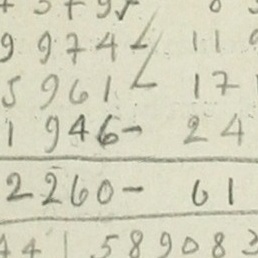 9 9 7 4 11
5 9 6 1 17
1 9 4 6 - 24
2 2 6 0 - 61
4 4 1 5 8 9 0 8 3